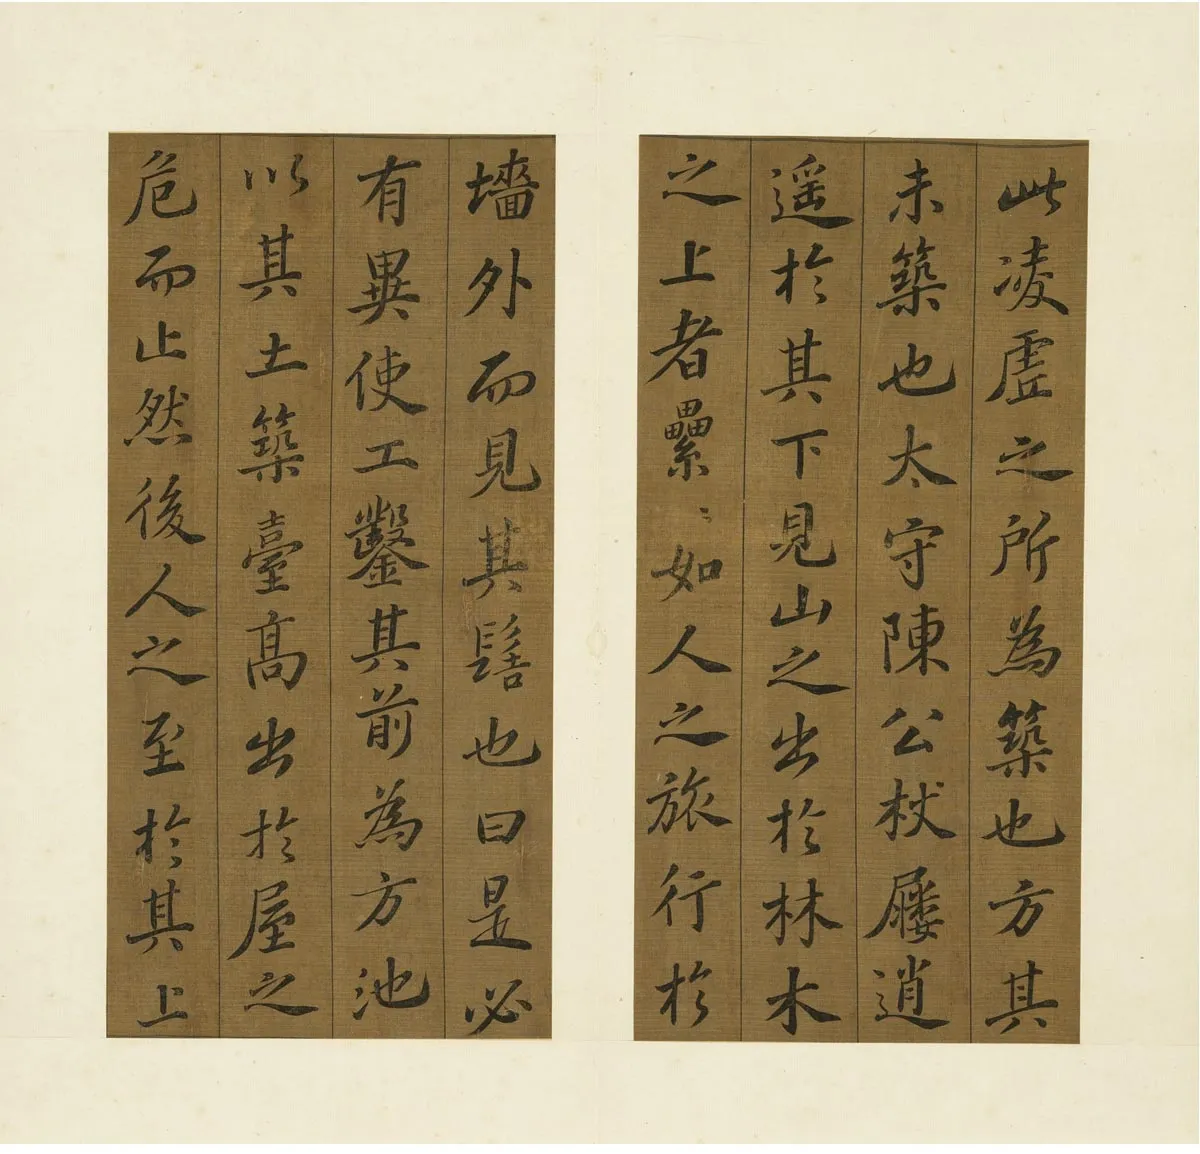 此淩虛之所為築也方其
未築也太守陳公杖屨逍
遥於其下見山之出於林木
之上者纍〻如人之旅行於
墻外而見其髻也曰是必
有異使工鑿其前為方池
以其土築臺高出於屋之
危而止然後人之至於其上